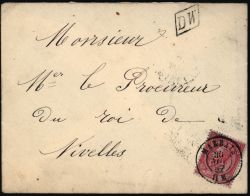 DW
Monsieur
Mer le Procureur
du roi de
Nivelles